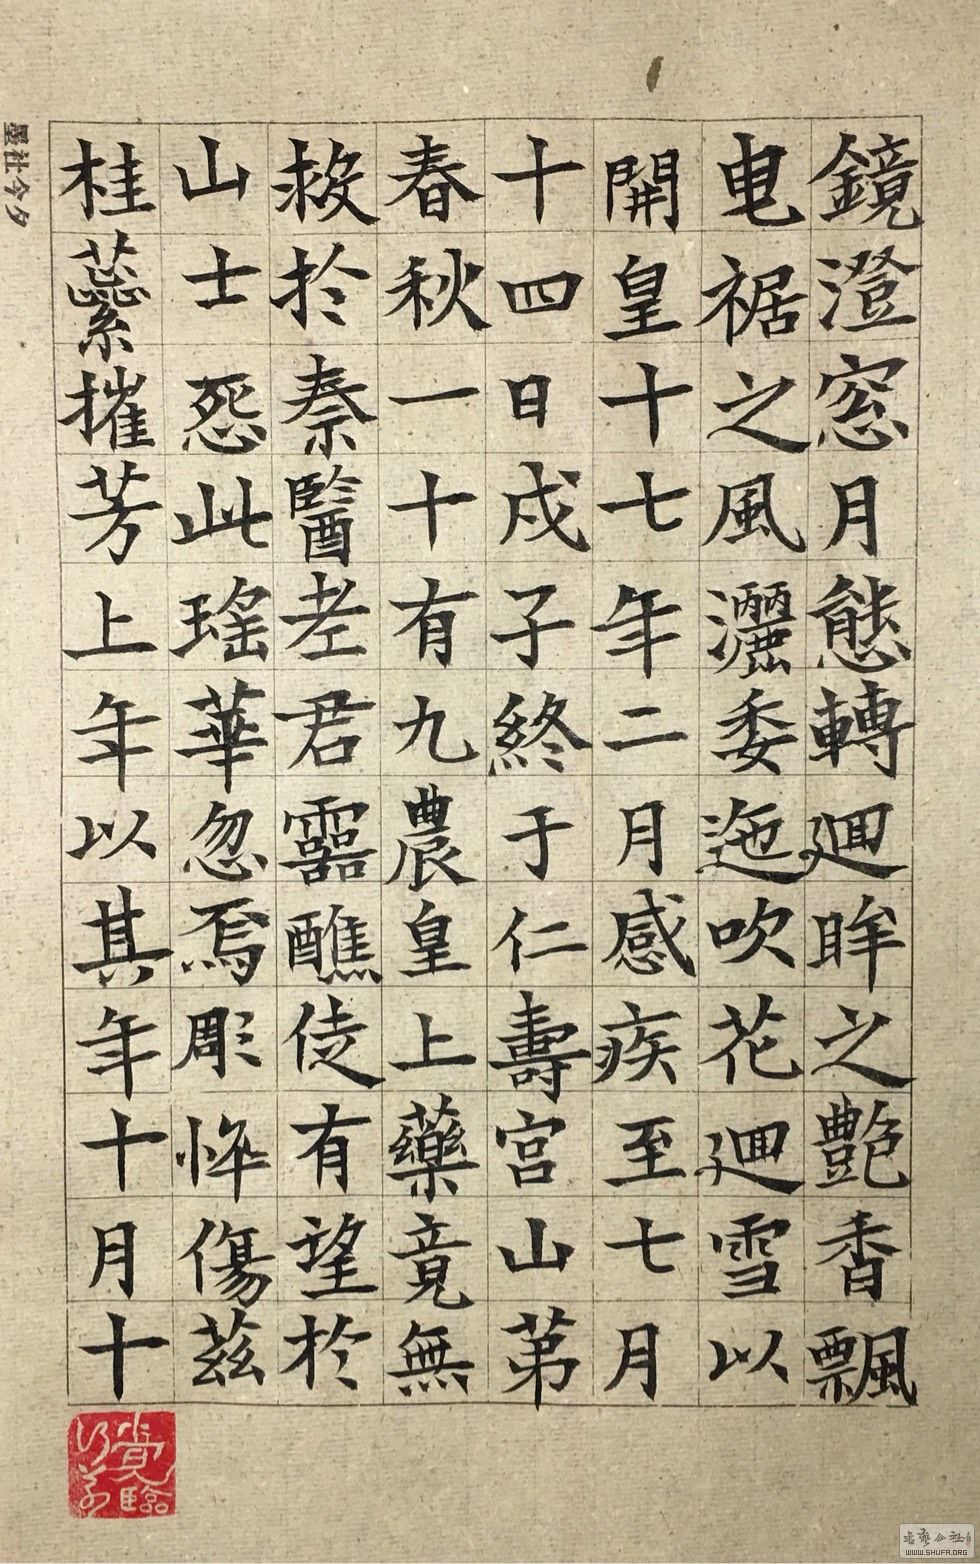 鏡澄窓月態轉廻眸之艶香飄
电裾之風灑委迤吹花廻雪以
開皇十七年二月感疾至七月
十四日戍子終于仁壽宮山第
春秋一十有九農皇上藥竟無
救於秦醫老君靈醮徒有望於
山士怨此瑤華忽焉彫悴傷茲
桂蘂摧芳上年以其年十月十
墨社今夕
臨
WWW.SHUFA.ORG